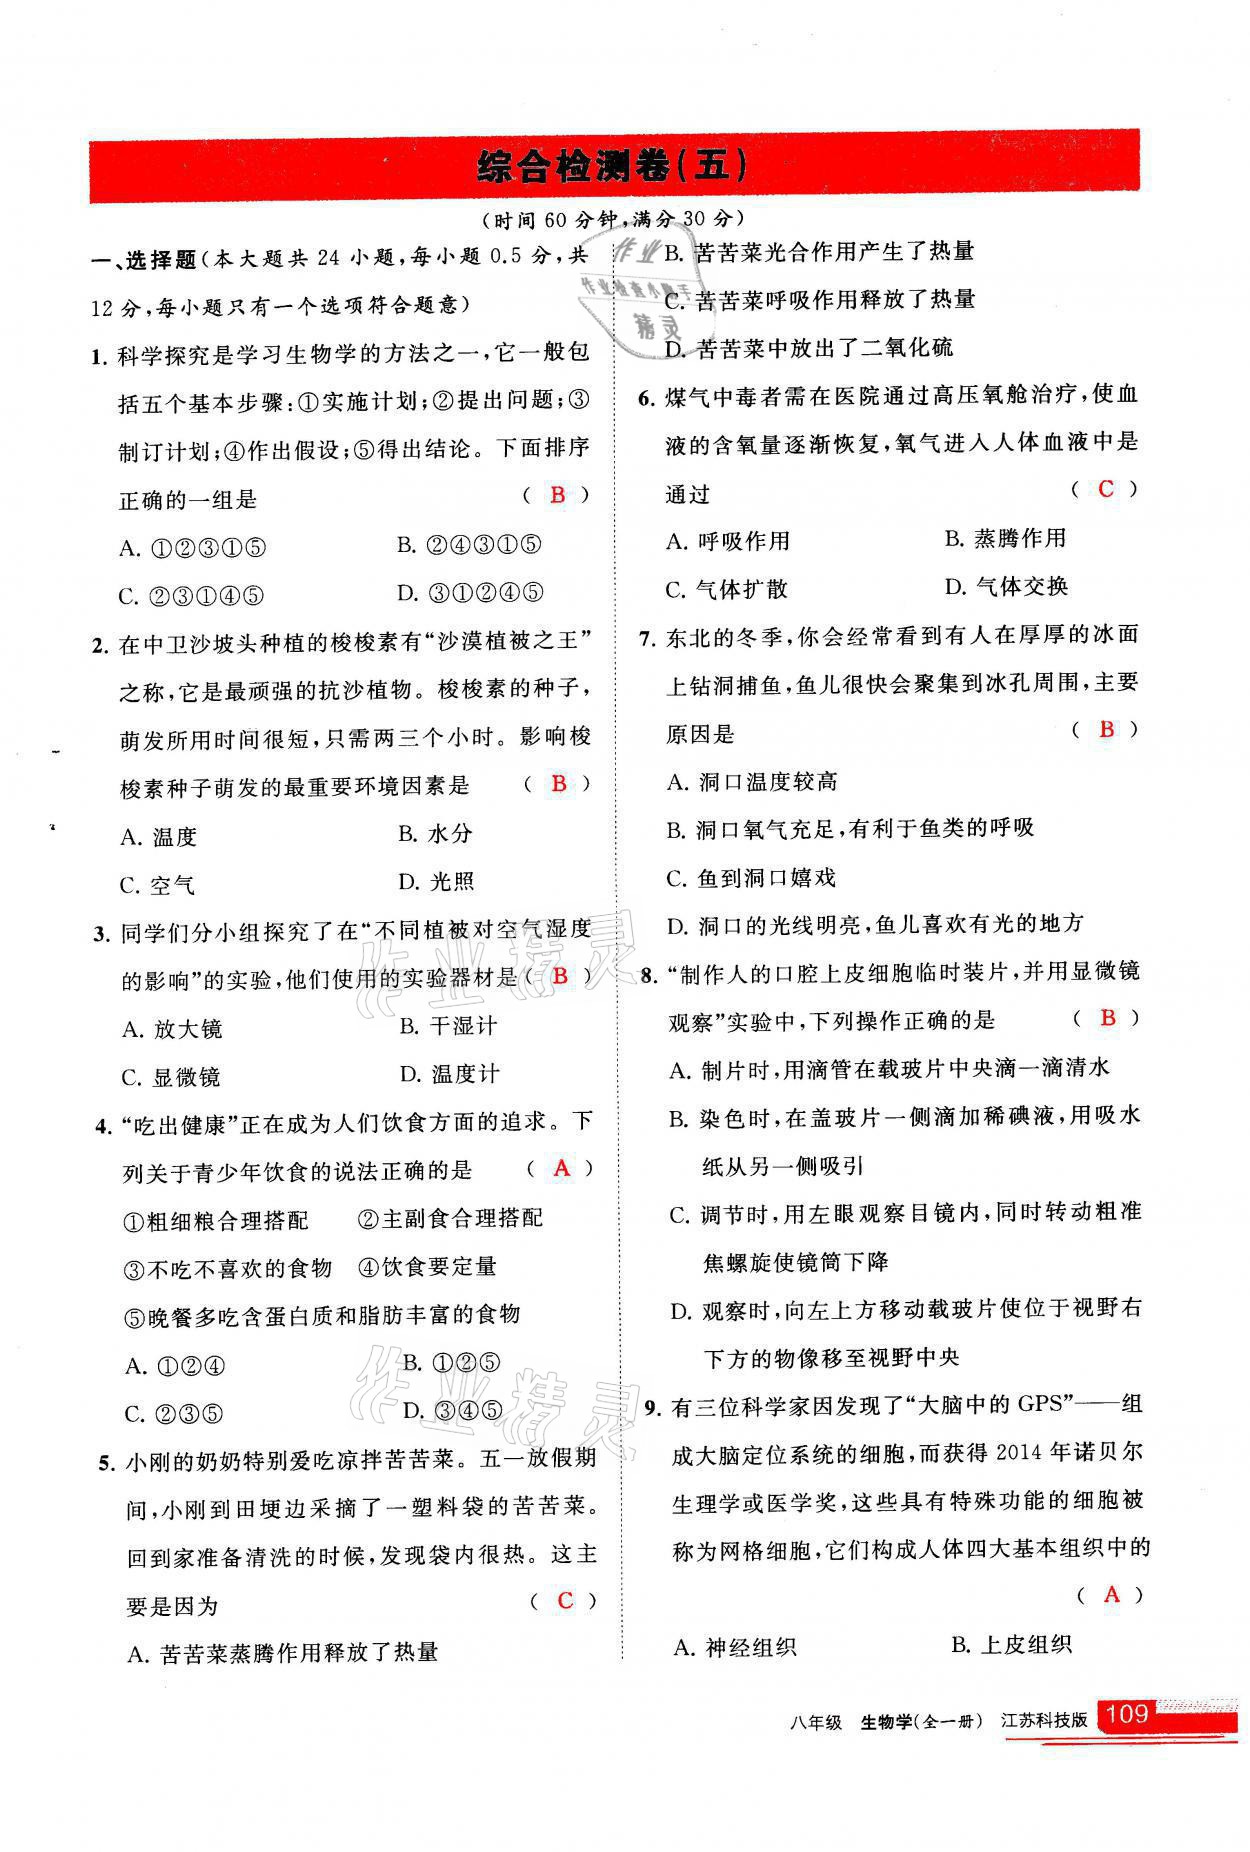 综合检测卷(五)
(时间60分钟,满分30分)
一、选择题(本大题共24小题,每小题0.5分,共
12分,每小题只有一个选项符合题意)
1. 科学探究是学习生物学的方法之一,它一般包
括五个基本步骤:①实施计划;②提出问题;③
制订计划;④作出假设;⑤得出结论。下面排序
正确的一组是 ( B )
A. ①②③①⑤ B. ②④③①⑤
C. ②③①④⑤ D. ③①②④⑤
2. 在中卫沙坡头种植的梭梭素有“沙漠植被之王”
之称,它是最顽强的抗沙植物。梭梭素的种子,
萌发所用时间很短,只需两三个小时。影响梭
梭素种子萌发的最重要环境因素是 ( B )
A. 温度 B. 水分
C. 空气 D. 光照
3. 同学们分小组探究了在“不同植被对空气湿度
的影响”的实验,他们使用的实验器材是( B )
A. 放大镜 B. 干湿计
C. 显微镜 D. 温度计
4. “吃出健康”正在成为人们饮食方面的追求。下
列关于青少年饮食的说法正确的是 ( A )
①粗细粮合理搭配 ②主副食合理搭配
③不吃不喜欢的食物 ④饮食要定量
⑤晚餐多吃含蛋白质和脂肪丰富的食物
A. ①②④ B. ①②⑤
C. ②③⑤ D. ③④⑤
5. 小刚的奶奶特别爱吃凉拌苦苦菜。五一放假期
间,小刚到田埂边采摘了一塑料袋的苦苦菜。
回到家准备清洗的时候,发现袋内很热。这主
要是因为 ( C )
A. 苦苦菜蒸腾作用释放了热量
B. 苦苦菜光合作用产生了热量
C. 苦苦菜呼吸作用释放了热量
D. 苦苦菜中放出了二氧化硫
6. 煤气中毒者需在医院通过高压氧舱治疗,使血
液的含氧量逐渐恢复,氧气进入人体血液中是
通过 ( C )
A. 呼吸作用 B. 蒸腾作用
C. 气体扩散 D. 气体交换
7. 东北的冬季,你会经常看到有人在厚厚的冰面
上钻洞捕鱼,鱼儿很快会聚集到冰孔周围,主要
原因是 ( B )
A. 洞口温度较高
B. 洞口氧气充足,有利于鱼类的呼吸
C. 鱼到洞口嬉戏
D. 洞口的光线明亮,鱼儿喜欢有光的地方
8. “制作人的口腔上皮细胞临时装片,并用显微镜
观察”实验中,下列操作正确的是 ( B )
A. 制片时,用滴管在载玻片中央滴一滴清水
B. 染色时,在盖玻片一侧滴加稀碘液,用吸水
纸从另一侧吸引
C. 调节时,用左眼观察目镜内,同时转动粗准
焦螺旋使镜筒下降
D. 观察时,向左上方移动载玻片使位于视野右
下方的物像移至视野中央
9. 有三位科学家因发现了“大脑中的GPS”——组
成大脑定位系统的细胞,而获得2014年诺贝尔
生理学或医学奖,这些具有特殊功能的细胞被
称为网格细胞,它们构成人体四大基本组织中的
( A )
A. 神经组织 B. 上皮组织
八年级 生物学(全一册) 江苏科技版 109
作业
作业检查小助手
精灵
作业精灵
作业精灵